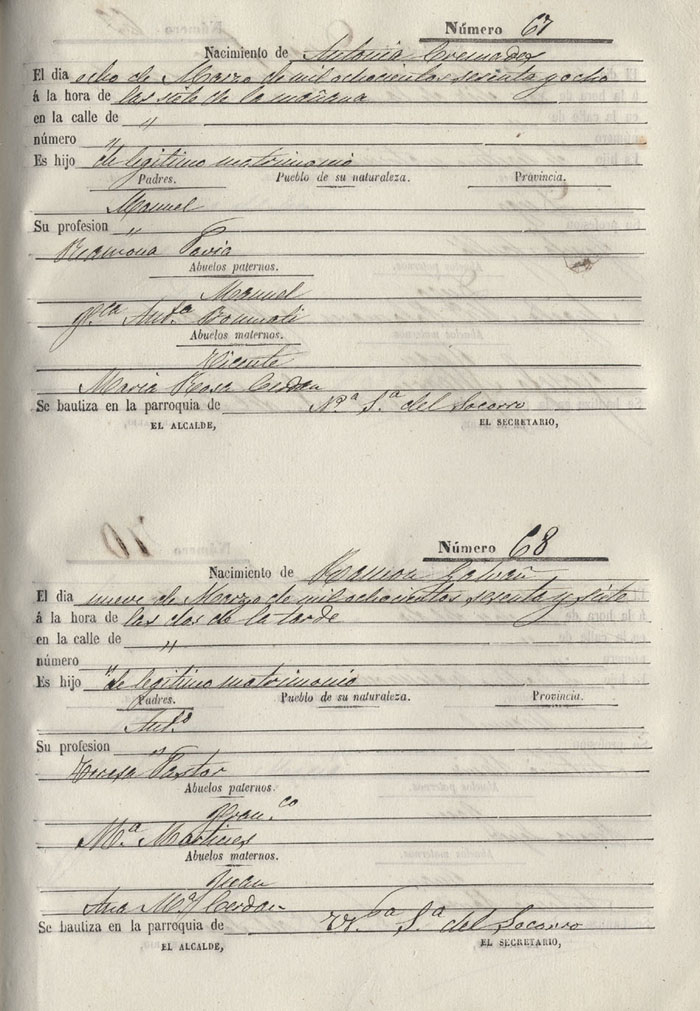 Número 67
Nacimiento de Antonia Cremades
El dia ocho de Marzo de mil ochocientos sesenta y ocho
á la hora de las siete de la mañana
en la calle de "
número "
Es hijo de legitimo matrimonio
Padres. Pueblo de su naturaleza. Provincia.
Manuel
Su profesion "
Ramona Pavia
Abuelos paternos.
Manuel
Ant.a
Abuelos maternos.
Vicente
Maria Rosa Cerdan
Se bautiza en la parroquia de Nra. S.a del Socorro
EL ALCALDE, EL SECRETARIO,
Número 68
Nacimiento de Ramon Galvañ
El dia nueve de Marzo de mil ochocientos sesenta y siete
á la hora de las dos de la tarde
en la calle de "
número "
Es hijo de legitimo matrimonio
Padres. Pueblo de su naturaleza. Provincia.
Ant.o
Su profesion "
Teresa Pastor
Abuelos paternos.
Fran.co
M.a Martinez
Abuelos maternos.
Juan
Ana M.a Cerdan
Se bautiza en la parroquia de S.a del Socorro
EL ALCALDE, EL SECRETARIO,